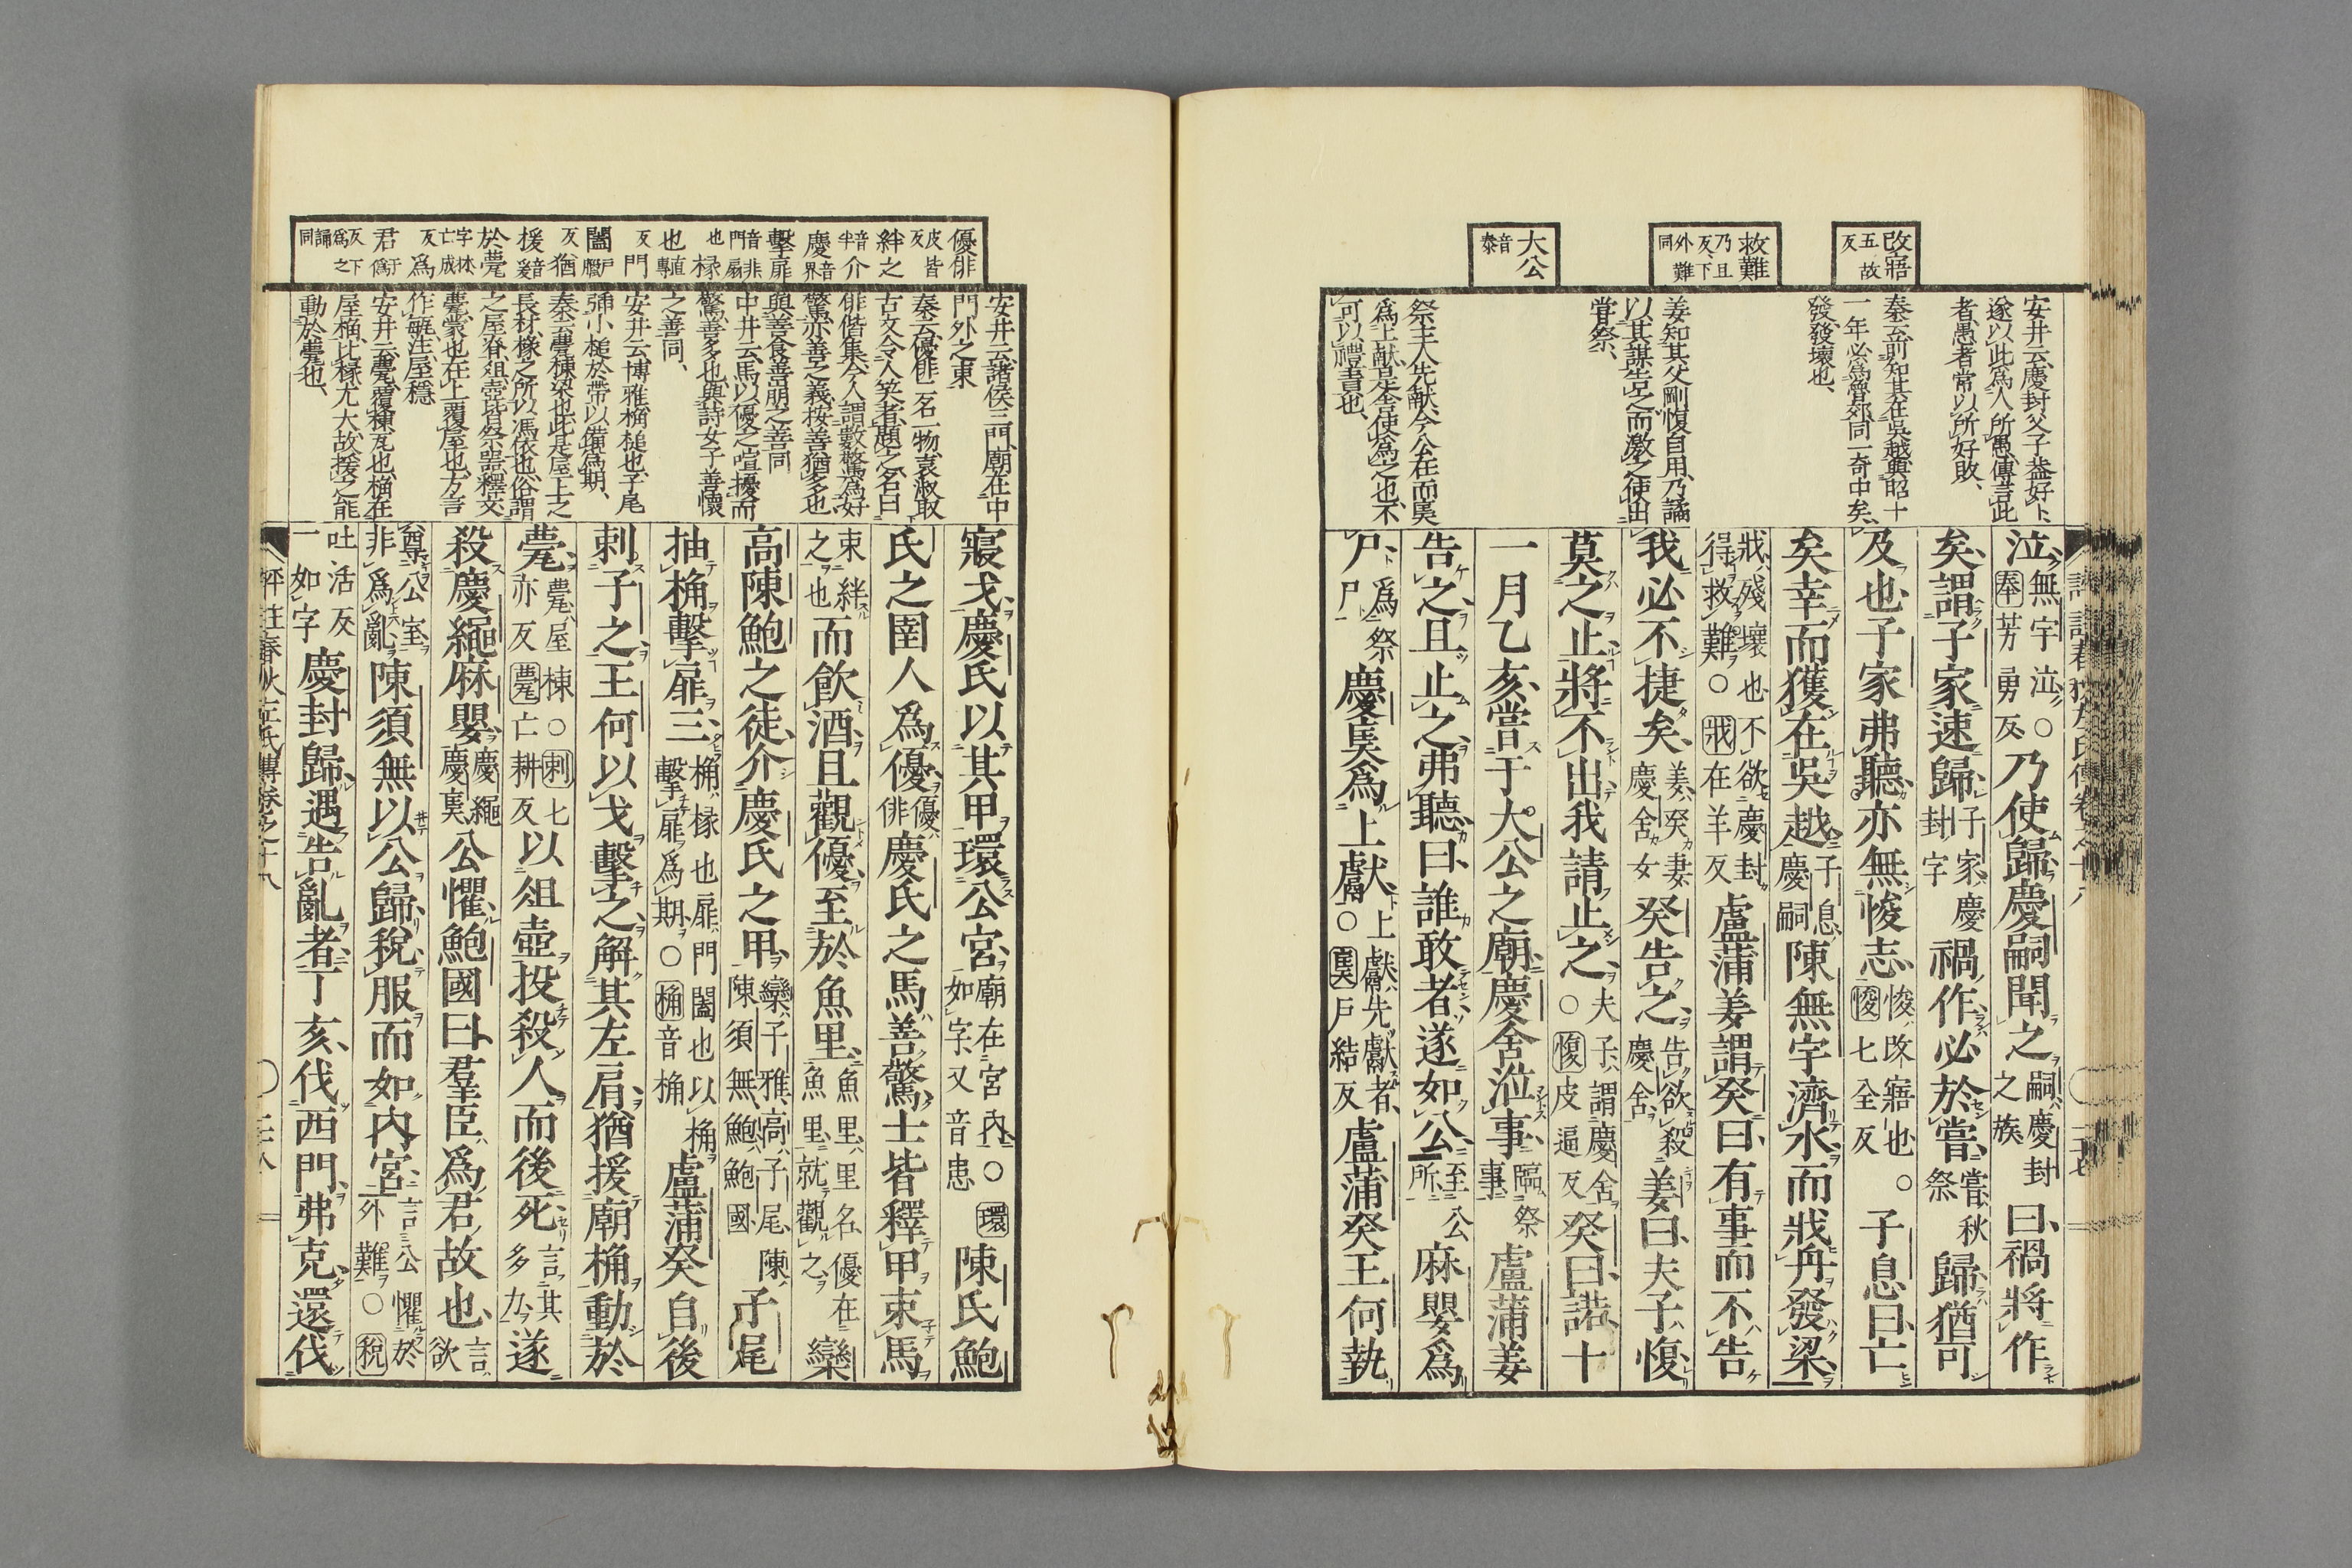 改寤
五故
反
救難
乃且
反下
外難
同
大公
音
泰
安井云慶封父子葢好卜
遂以此爲人所愚傳言此
者愚者常以所好敗
秦云前知其在吳越與昭十
一年必爲魯郊同一奇中矣
發發壞也
姜知其父剛愎自用乃譎
以其謀告之而激之使出
嘗祭
祭主人先献今公在而㚖
爲上献是舍使爲之也不
可以禮書也
泣無宇泣○奉芳勇反乃使歸慶嗣聞之嗣慶封之族曰禍將作
矣謂子家速歸子家慶封字禍作必於嘗嘗秋祭歸猶可
及也子家弗聽亦無悛志悛改寤也○悛七全反子息曰亡
矣幸而獲在吳越子息慶嗣陳無宇濟水而戕舟發梁
戕殘壞也不欲慶封得救難○戕在羊反盧蒲姜謂癸曰有事而不告
我必不捷矣姜癸妻慶舍女癸告之告欲殺慶舍姜曰夫子愎
莫之止將不出我請止之夫子謂慶舍○愎皮逼反癸曰諾十
一月乙亥嘗于大公之廟慶舍涖事臨祭事盧蒲姜
告之且止之弗聽曰誰敢者遂如公至公所麻嬰爲
尸爲祭尸慶㚖爲上獻上獻先獻者○㚖戶結反盧蒲癸王何執
優俳
皮皆
反
絆之
音
半
介
慶
音
界
擊扉
音非
門扇
也
椽
直
專
也
反
門
闔
戶
臘
反
猶
援
音
爰
於甍
字林
亡成
反
爲
君
于
僞
反下
爲之
誦
同
安井云諸侯三門廟在中
門外之東
秦云優俳一名一物袁淑取
古文令人笑者題之名曰
俳偕集今人謂數驚爲好
驚亦善之義按善猶多也
與善食善朋之善同
中井云馬以優之喧擾而
驚善多也與詩女子善懷
之善同
安井云博雅桷槌也子尾
彌小槌於帶以備爲期
秦云甍棟梁也此是屋上之
長材椽之所以馮依也俗謂
之屋脊俎壺皆祭器釋文
甍蒙也在上覆屋也方言
作甍注屋穩
安井云甍覆棟瓦也桷在
屋楣比椽尤大故援之能
動於甍也
寢戈慶氏以其甲環公宮廟在宮內○環如字又音患陳氏鮑
氏之圉人爲優優俳慶氏之馬善驚士皆釋甲束馬
束絆之也而飮酒且觀優至於魚里魚里里名優在魚里就觀之欒
高陳鮑之徒介慶氏之甲欒子雅高子尾陳陳須無鮑鮑國子尾
抽桷擊扉三桷椽也扉門闔也以桷擊扉爲期○桷音桷盧蒲癸自後
刺子之王何以戈擊之解其左肩猶援廟桷動於
甍甍屋棟○刺七亦反甍亡耕反以俎壺投殺人而後死言其多力遂
殺慶繩麻嬰慶繩慶㚖公懼鮑國曰羣臣爲君故也言欲
尊公室非爲亂陳須無以公歸稅服而如內宮言公懼於外難○稅
吐活反一如字慶封歸遇告亂者丁亥伐西門弗克還伐
評註春秋左氏傳卷之十八 二十八